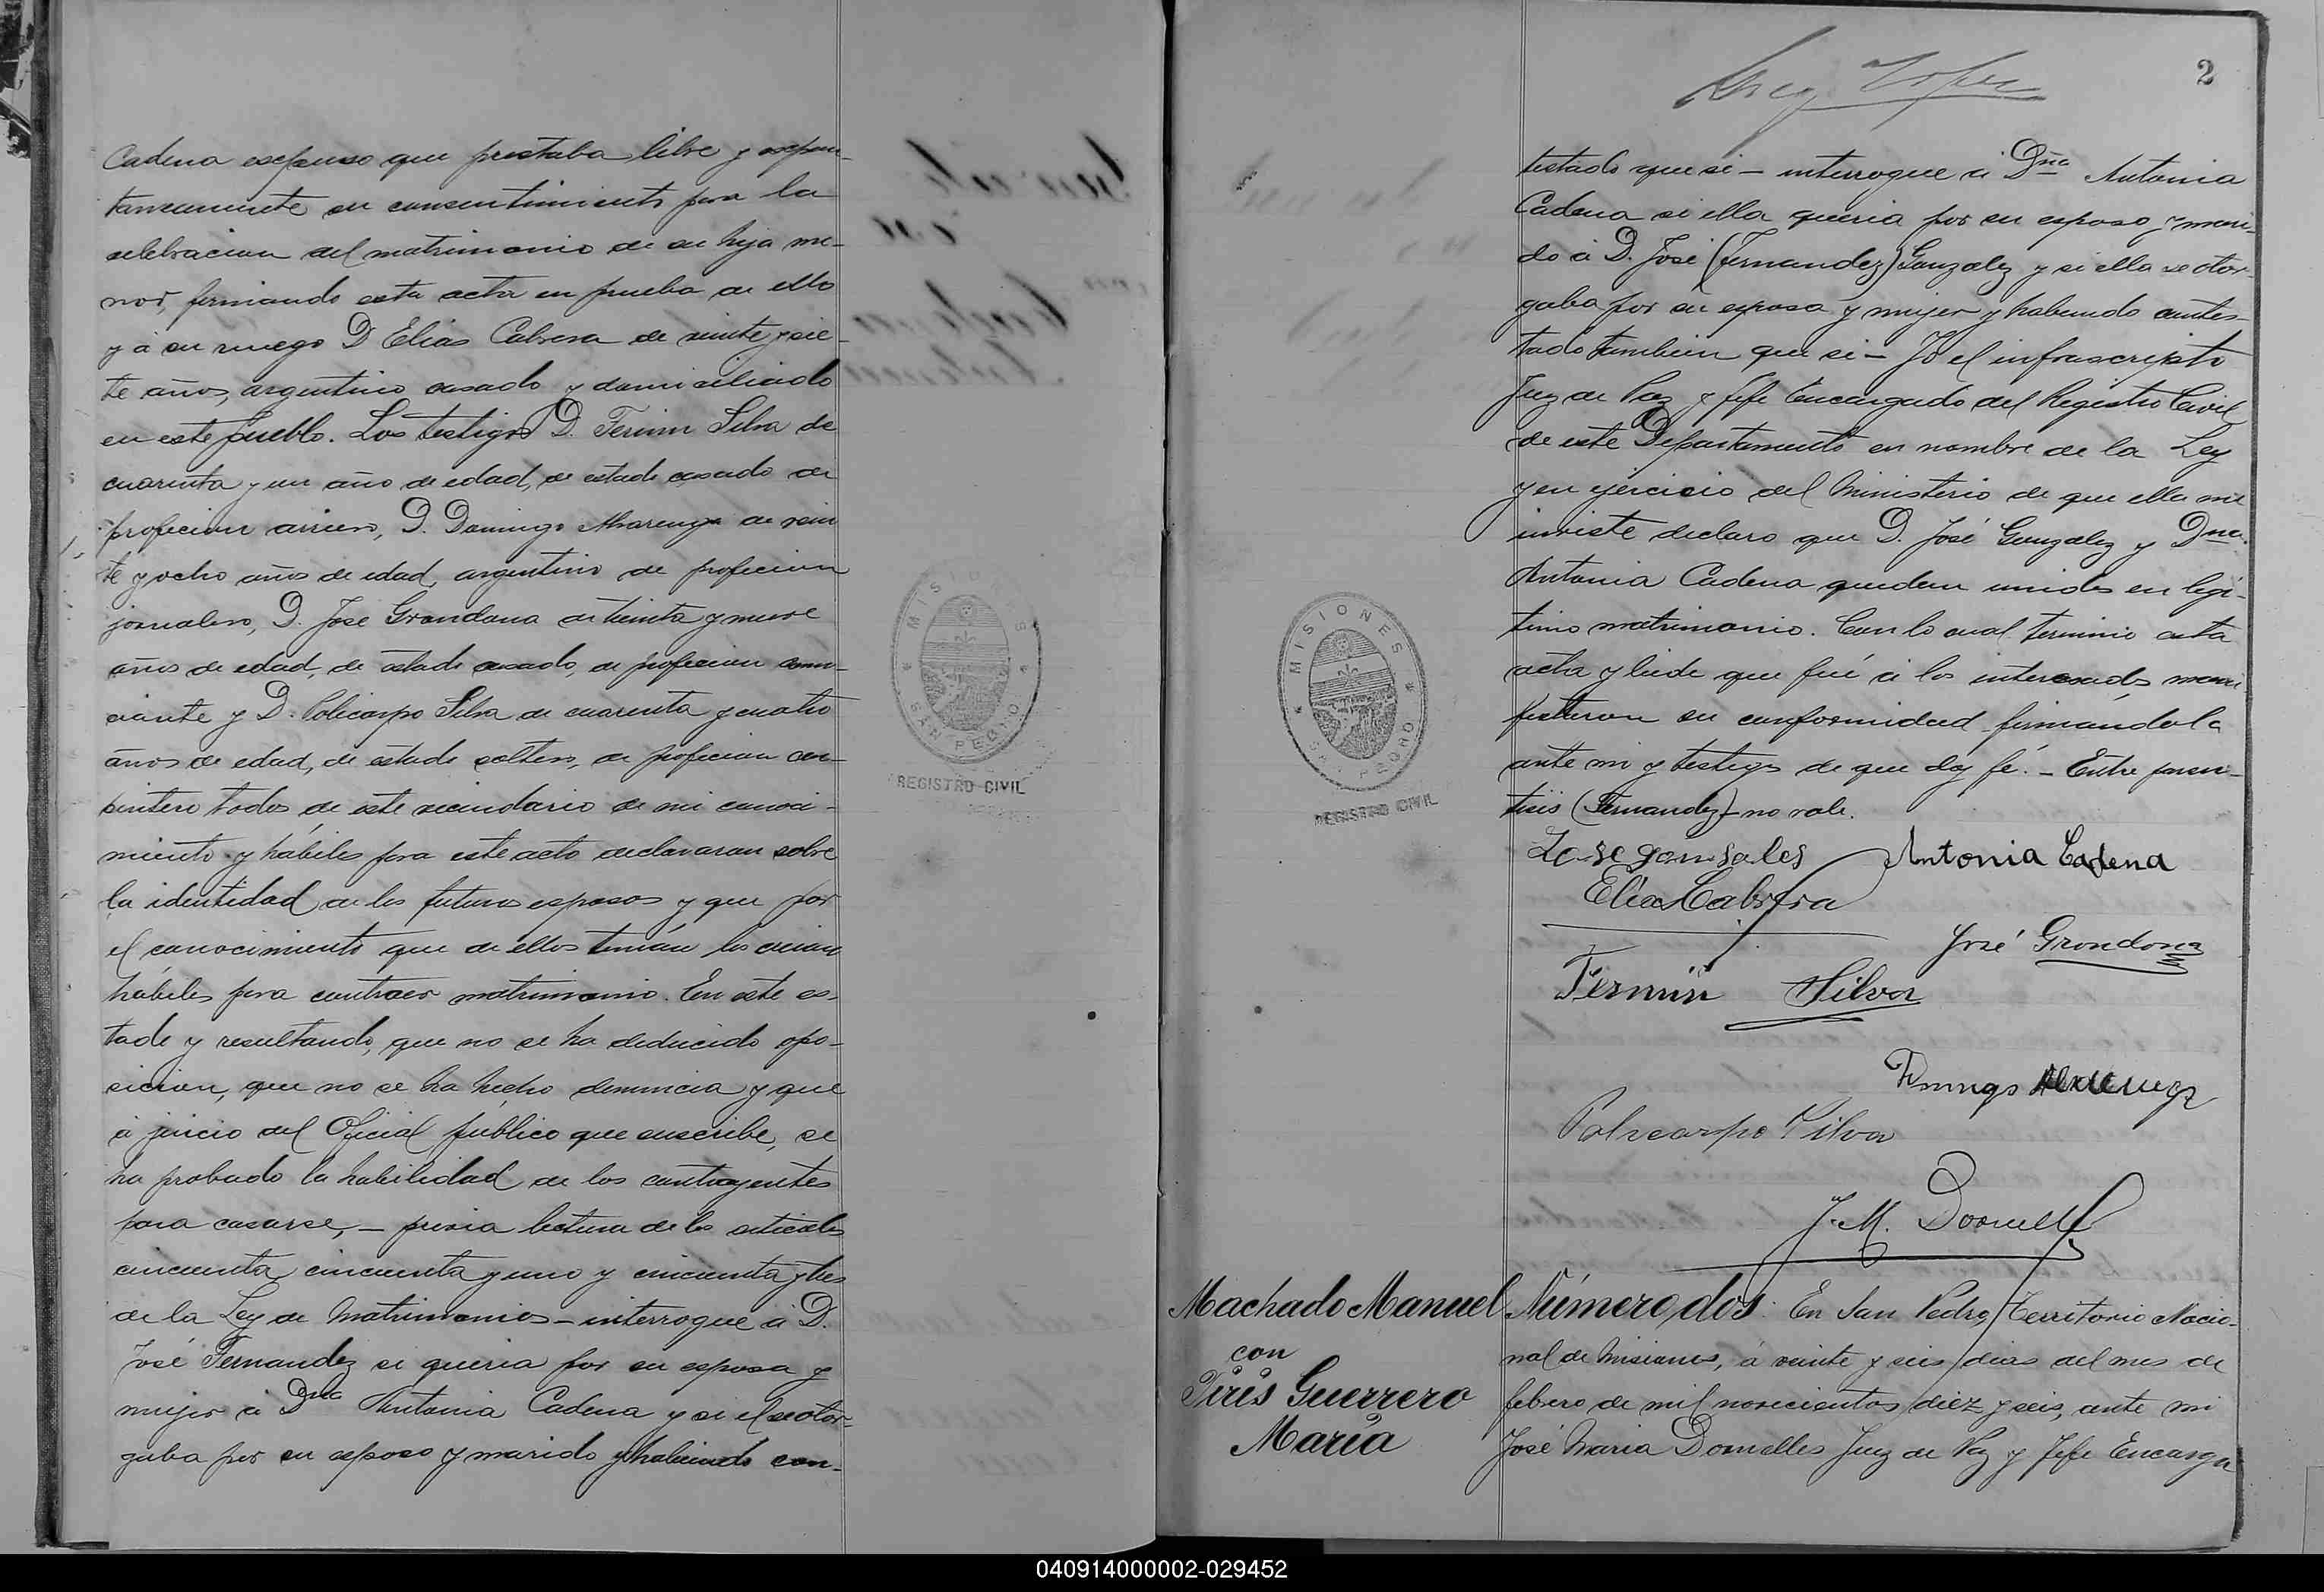 Cadena expuso que prestaba libre y expon-
taneamente su consentimiento para la
celebracion del matrimonio de su hija me-
nor, firmando esta acta en prueba de ello
y á su ruego D Elias Cabrera de veinte y sie-
te años, argentino casado y domiciliado
en este pueblo. Los testigos D. Fermin Silva de
cuarenta y un año de edad, de estado casado de
profecion arriero, D. Domingo Alvarenga de vein
te y ocho años de edad, argentino de profecion
jornalero, D. José Grondona de treinta y nueve
años de edad, de estado casado, de profecion comer-
ciante y D. Policarpo Silva de cuarenta y cuatro
años de edad, de estado soltero, de profecion car-
pintero todos de este vecindario de mi conoci-
miento y hábiles para este acto declararan sobre
la identidad de los futuros esposos y que por
el conocimiento que de ellos tenían los creian
hábiles para contraer matrimonio. En este es-
tado y resultando, que no se ha deducido opo-
sicion, que no se ha hecho denuncia y que
á juicio del Oficial público que suscribe, se
ha probado la habilidad de los contrayentes
para casarse, — previa lectura de los articulos
cincuenta, cincuenta y uno y cincuenta y tres
de la Ley de Matrimonios - interrogue á D.
José Fernandez si queria por su esposa y
mujer á Dña Antonia Cadena y si el se otor-
gaba por su esposo y marido y habiendo con-
MISIONES
SAN PEDRO
REGISTRO CIVIL
2
testado que si — interrogue á Dña Antonia
Cadena si ella queria por su esposo y mari-
do á D. José (Fernandez) Gonzalez y si ella se otor-
gaba por su esposa y mujer y habiendo contes-
tado tambien que si — Yo el infrascripto
Juez de Paz y Jefe Encargado del Registro Civil
de este Departamento en nombre de la Ley
y en ejercicio del Ministerio de que ella me
inviste declaro que D. José Gonzalez y Dña.
Antonia Cadena quedan unidos en legi-
timo matrimonio. Con lo cual terminó esta
acta y leida que fué á los interesados mani
festaron su conformidad firmándola
ante mi y testigos de que doy fé. — Entre paren-
tisis (Fernandez) — no vale.
MISIONES
SAN PEDRO
REGISTRO CIVIL
Jose gonsales Antonia Cadena
Elias Cabrera
José Grondona
Fermin Silva
Domingo Alvarenga
Policarpo Silva
J. M. Dornell
Machado Manuel
con
Piris Guerrero
Maria
Número dos. En San Pedro, Territorio Nacio-
nal de Misiones, á veinte y seis dias del mes de
febrero de mil novecientos diez y seis, ante mi
José Maria Dornelles Juez de Paz y Jefe Encarga
040914000002-029452